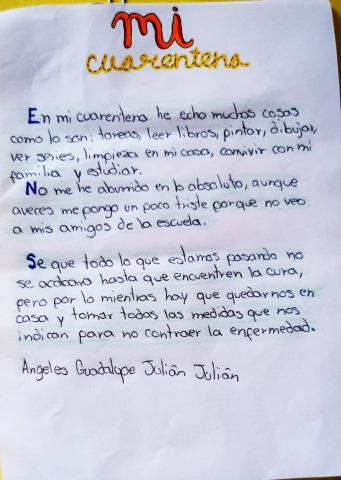 mi
cuarentena
En mi cuarentena he echo muchas cosas
como lo son: tareas, leer libros, pintar, dibujar,
ver series, limpieza en mi casa, convivir con mi
familia y estudiar.
No me he aburrido en lo absoluto, aunque
aveces me pongo un poco triste porque no veo
a mis amigos de la escuela.
Se que todo lo que estamos pasando no
se acabara hasta que encuentren la cura,
pero por lo mientras hay que quedarnos en
casa y tomar todas las medidas que nos
indican para no contraer la enfermedad.
Angeles Guadalupe Julián Julián